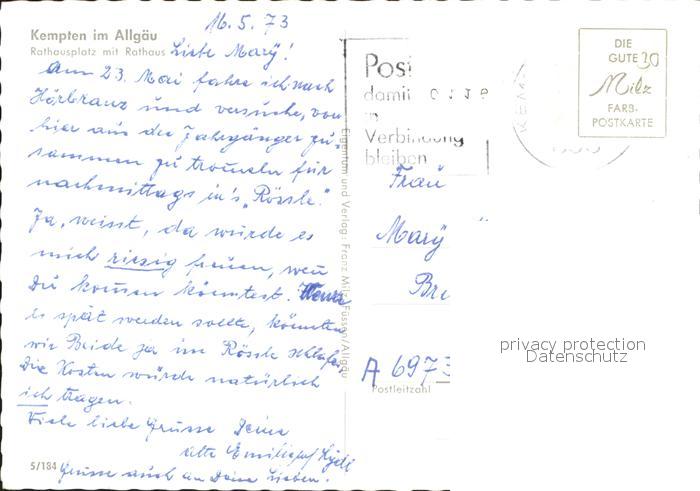 16. 5. 73
Kempten im Allgäu
Rathausplatz mit Rathaus
Liebe Mary!
Am 23. Mai fahre ich nach
Hörbranz und versuche, von
hier aus die Jahrgänger zu-
sammen zu trommeln für
nachmittags in's „Rössle".
Ja, weisst, da würde es
mich riesig freuen, wen
Du kommen könntest. Wenn
es spät werden sollte, könnten
wir Beide ja im Rössle schlafen,
Die Kosten würde natürlich
ich tragen.
Viele liebe Grüsse Deine
alte Emilie
Grüsse auch an Deine Lieben.
5/184
Eigentum und Verlag: Franz Milz, Füssen/Allgäu
Post
damit
in
Verbindung
bleiben
DIE
GUTE 30
Milz
FARB-
POSTKARTE
Frau
Mary
Bre
A 6973
Postleitzahl
privacy protection
Datenschutz